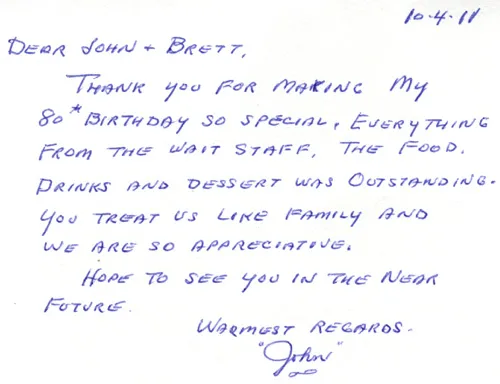 10-4-11
DEAR JOHN + BRETT,
THANK YOU FOR MAKING MY
80* BIRTHDAY SO SPECIAL, EVERYTHING
FROM THE WAIT STAFF, THE FOOD,
DRINKS AND DESSERT WAS OUTSTANDING.
YOU TREAT US LIKE FAMILY AND
WE ARE SO APPRECIATIVE.
HOPE TO SEE YOU IN THE NEAR
FUTURE.
WARMEST REGARDS.
"John"